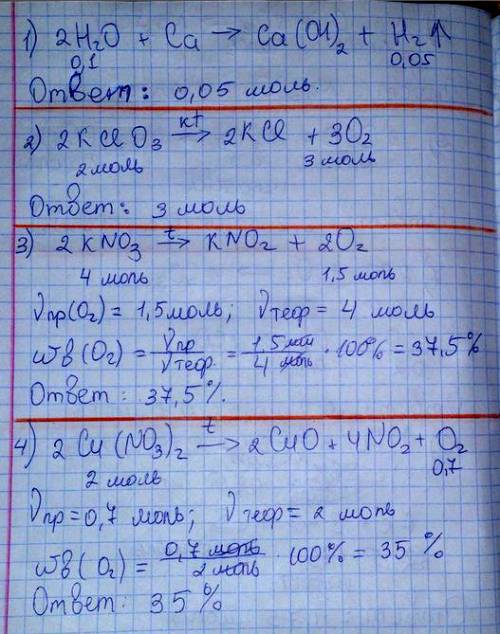 1) 2H₂O + Ca → Ca(OH)₂ + H₂↑
0,1 0,05
Ответ: 0,05 моль.
2) 2KClO₃ kt→ 2KCl + 3O₂
2 моль 3 моль
Ответ: 3 моль
3) 2KNO₃ t→ KNO₂ + 2O₂
4 моль 1,5 моль
νпр(O₂) = 1,5 моль; νтеор = 4 моль
Wв(O₂) = νпр/νтеор. = 1,5 моль/4 моль · 100% = 37,5%
Ответ: 37,5%.
4) 2Cu(NO₃)₂ t→ 2CuO + 4NO₂ + O₂
2 моль 0,7
νпр = 0,7 моль; νтеор = 2 моль
Wв(O₂) = 0,7 моль/2 моль 100% = 35%
Ответ: 35%